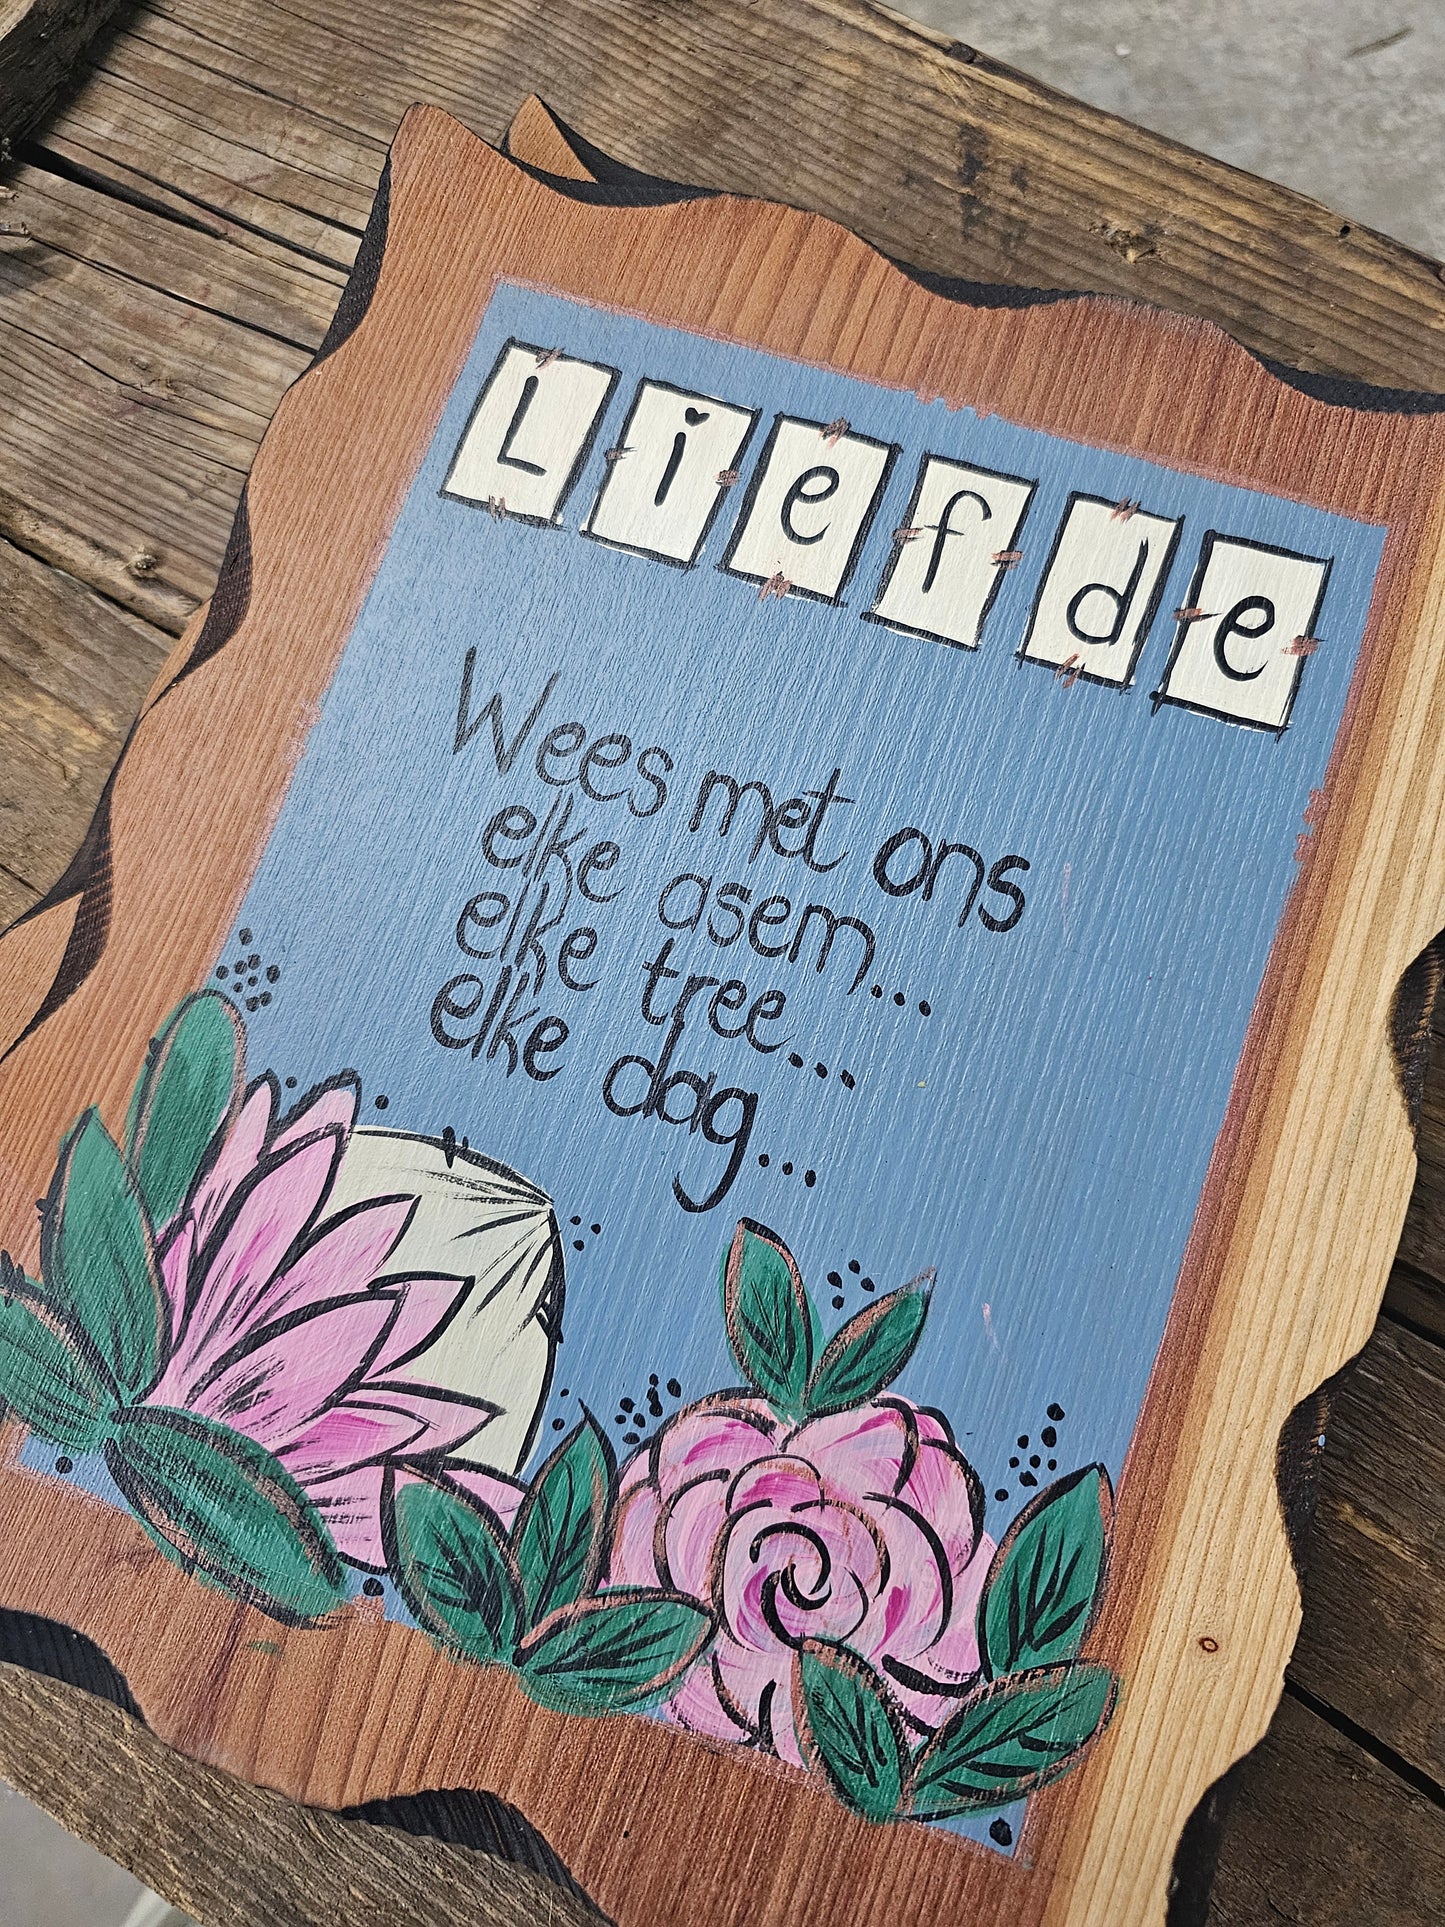 Liefde
Wees met ons
elke asem...
elke tree...
elke dag...